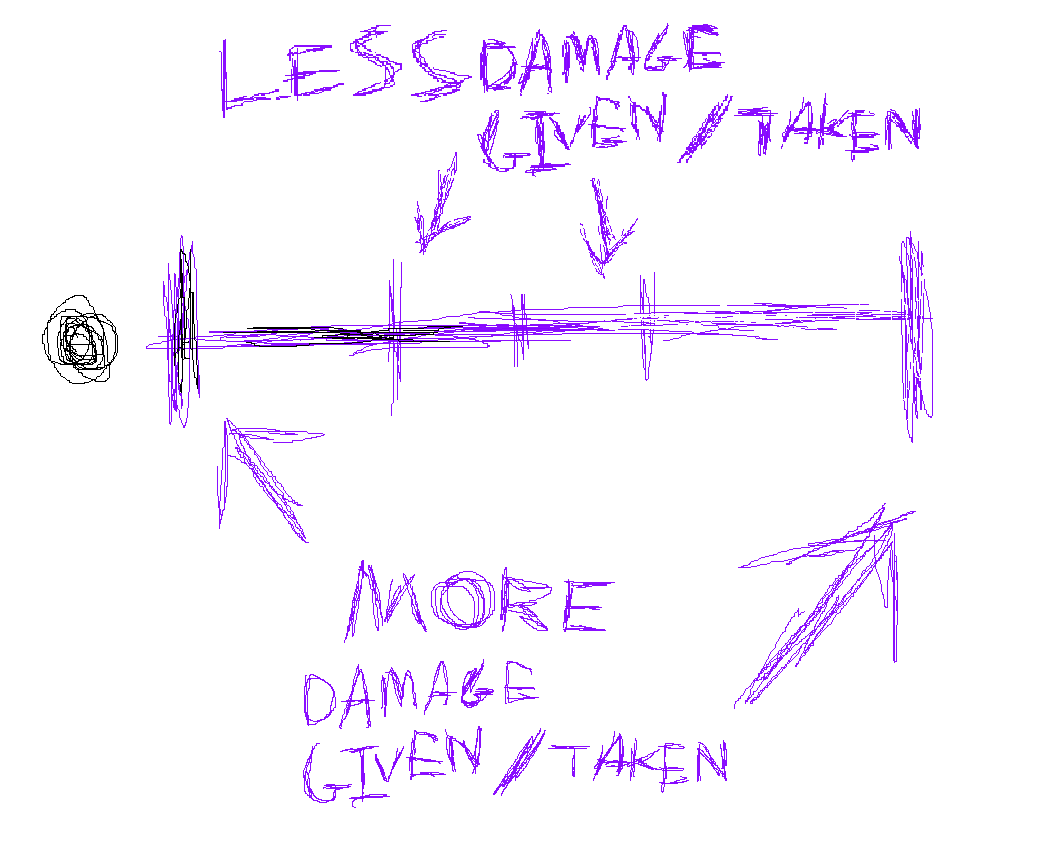 LESS DAMAGE
GIVEN/TAKEN
MORE
DAMAGE
GIVEN/TAKEN